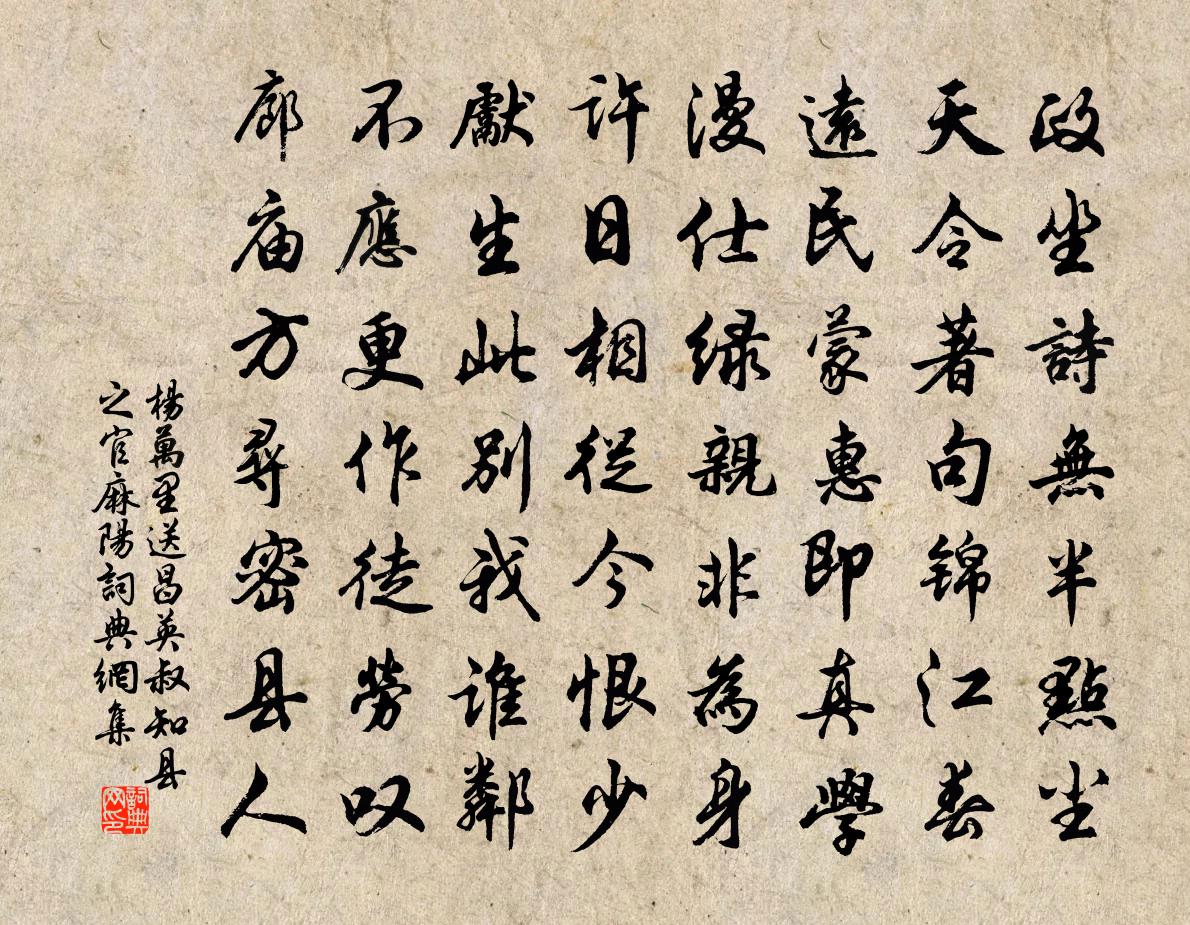 政坐詩無半點尘
天令著句锦江春
遠民蒙惠即真學
漫仕縁親非為身
許日相從今恨少
獻生此別我誰鄰
不應更作徒勞叹
廊庙方尋密县人
楊萬里送昌英叔知县
之官麻陽詞典網集
詞典
网印